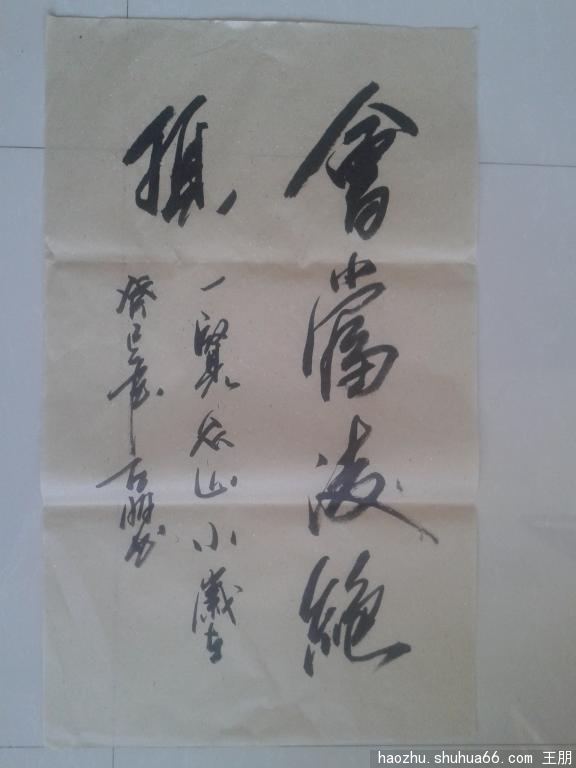 會當凌絕
頂
一覽众山小歲在
癸巳年 朋书
haozhu.shuhua66.com 王朋